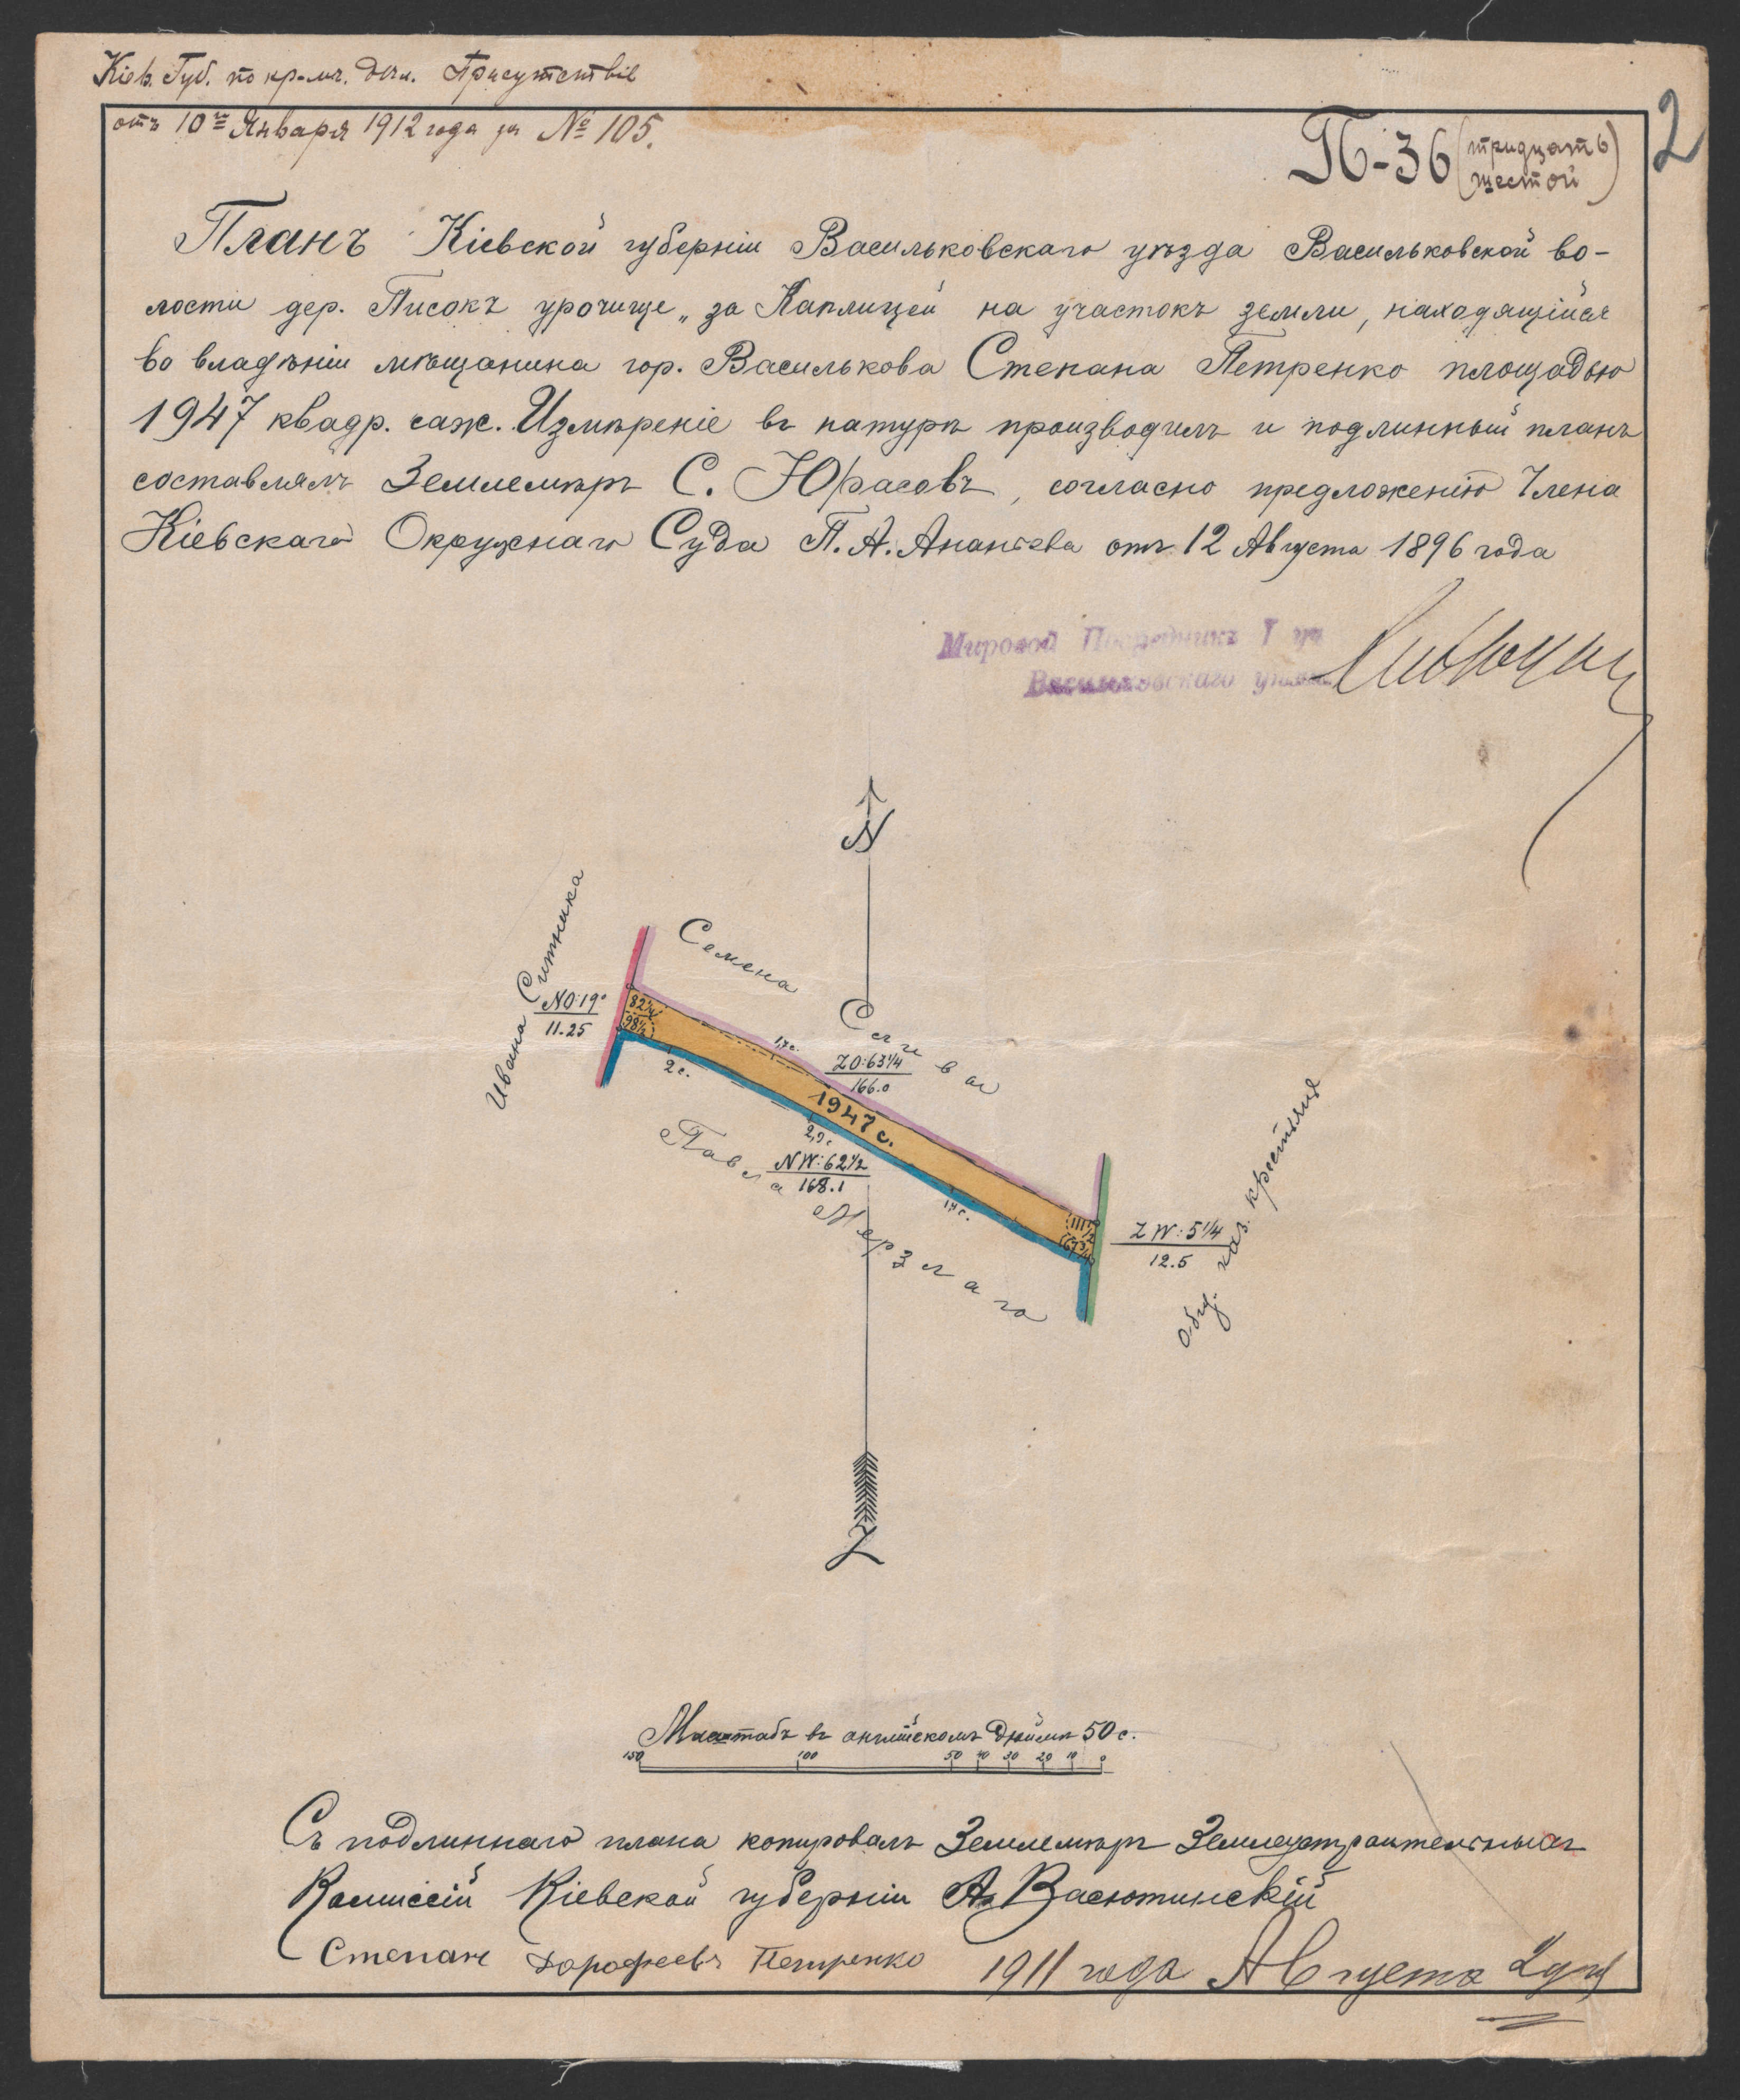 Кіев. Губ. по кр-мъ. дѣл. Присутствіе
отъ 10го Января 1912 года за № 105.
2
П-36 (тридцать
шестой)
Планъ Кіевской губерніи Васильковскаго уѣзда Васильковской во-
лости дер. Писокъ урочище „за Каплицей на участокъ земли, находящійся
во владѣніи мѣщанина гор. Василькова Степана Петренко площадью
1947 квадр. саж. Измѣреніе въ натурѣ производилъ и подлинный планъ
составлялъ Землемѣръ С. Юрасовъ, согласно предложенію Члена
Кіевскаго Окружнаго Суда П. А. Ананьева отъ 12 Августа 1896 года
Мировой Посредникъ I уч
Васильковскаго уѣзда
N
Ивана Ситника
Семена
Сливы
NO:19°
11.25
82¼
98½
1,7с.
ZO:63¼
166.0
2 с.
1947 с.
2,9с
NW:62½
168.1
Павла Мерзлаго
1,7 с.
111½
67¾
ZW:5¼
12.5
общ. каз. крестьянъ
Z
Масштабъ въ англійскомъ дюймѣ 50 с.
150 100 50 40 30 20 10 0
Съ подлиннаго плана копировалъ Землемѣръ Землеустроительныхъ
Комиссій Кіевской губерніи А. Васютинскій
Степанъ Дорофеевъ Петренко 1911 года Августа 2 дня